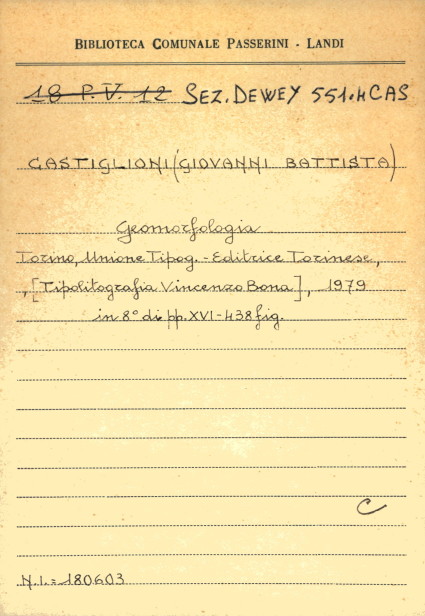 BIBLIOTECA COMUNALE PASSERINI - LANDI
18 P.V. 12 SEZ. DEWEY 551.4 CAS
CASTIGLIONI (GIOVANNI BATTISTA)
Geomorfologia
Torino, Unione Tipog.-Editrice Torinese,
, [Tipolitografia Vincenzo Bona], 1979
in 8° di pp. XVI-438 fig.
C
N.I.= 180603